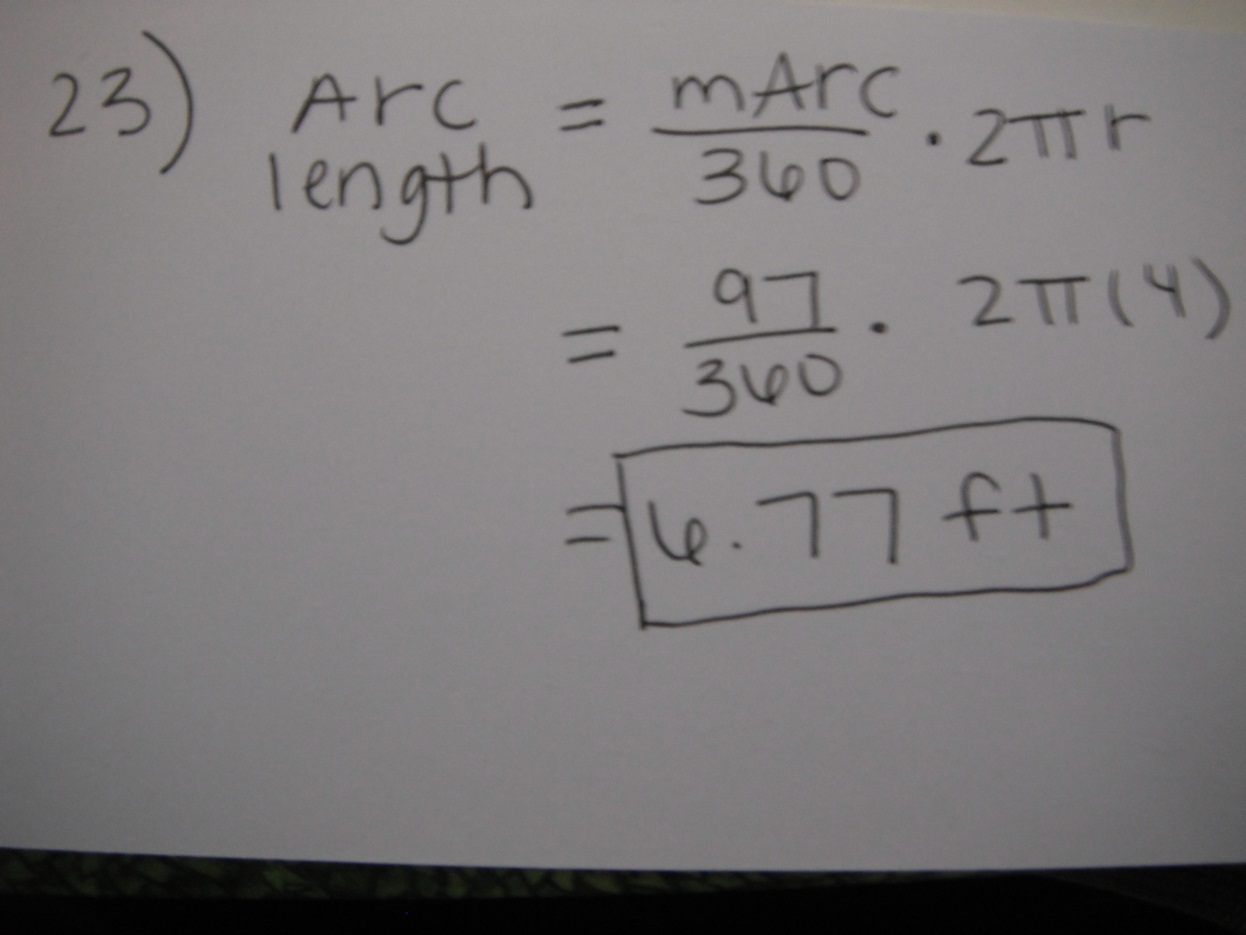 23) Arc length = mArc/360 · 2πr
= 97/360 · 2π(4)
= 6.77 ft